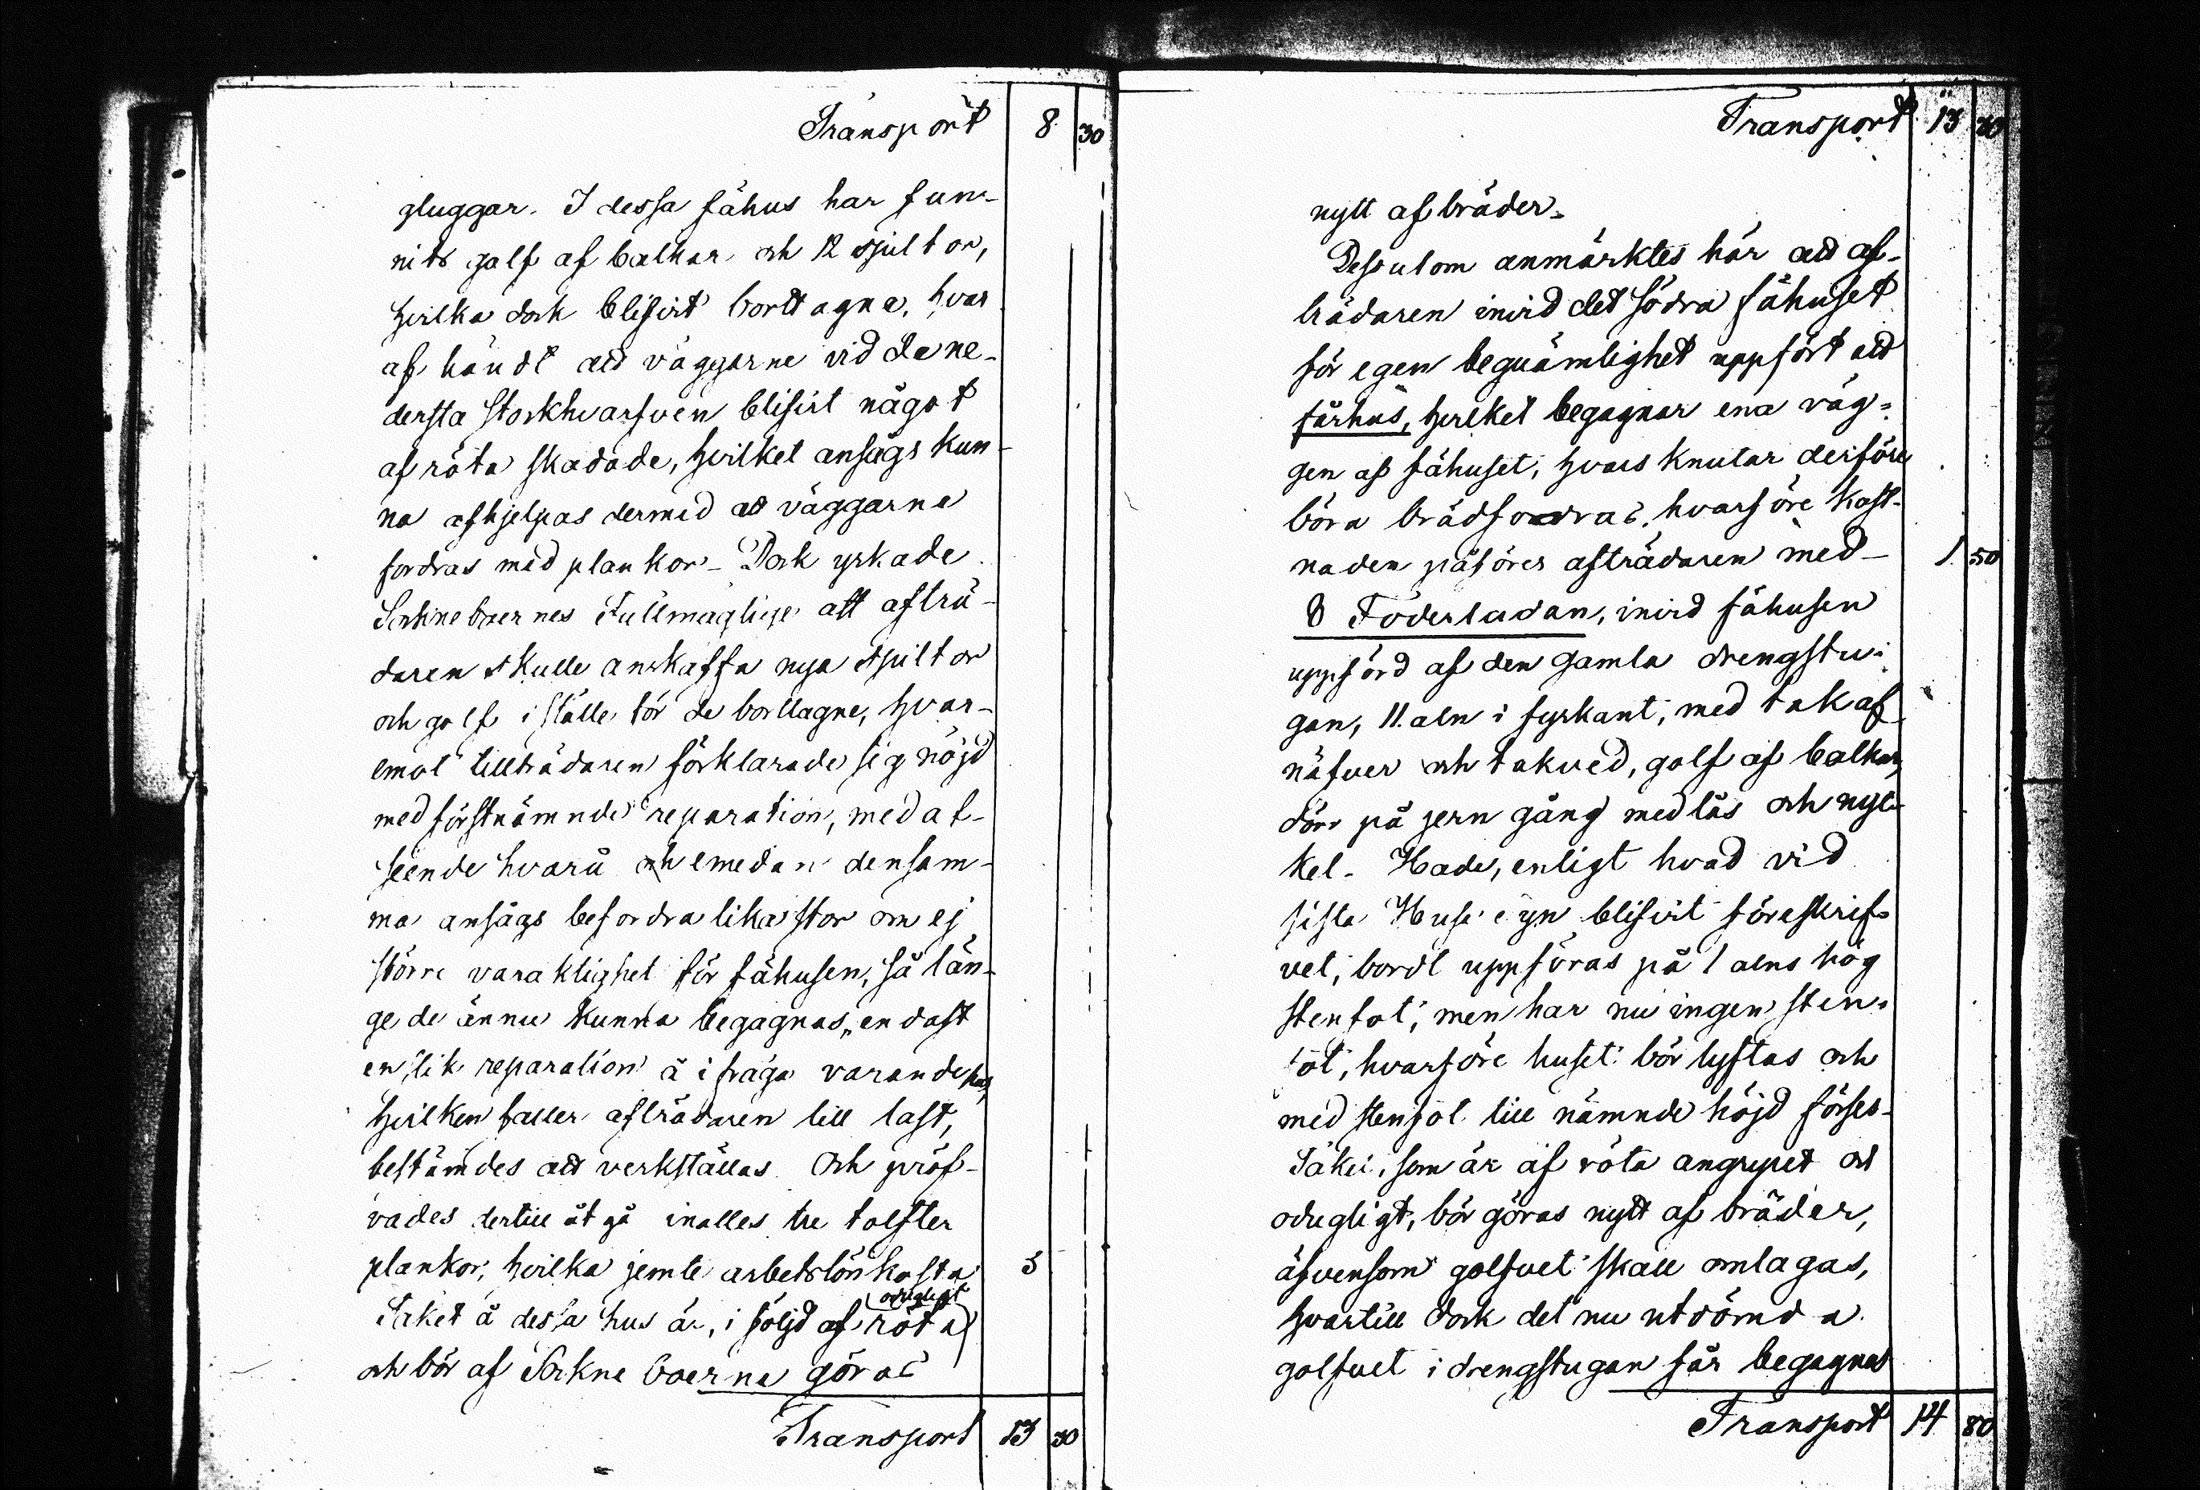 Transport 8 30
gluggar. I dessa fähus har fun-
nits golf af balkar och 12 spiltor,
hvilka dock blifvit borttagne, hvar
af händt att väggarne vid de ne-
dersta stockhvarfven blifvit något
af röta skadade, hvilket ansågs kun-
na afhjelpas dermed att väggarne
fordras med plankor - Dock yrkade
Sockneboernes Fullmägtige att afträ-
daren skulle anskaffa nya spiltor
och golf i stället för de borttagne, hvar-
emot tillträdaren förklarade sig nöjd
med förstnämnde reparation, med af-
seende hvarå och emedan densam-
ma ansågs befordra lika stor om ej
större varaktighet för fähusen, så län-
ge de ännu kunna begagnas, endast
en slik reparation å ifråga varande hus,
hvilken faller afträdaren till last,
bestämdes att verkställas och pröf-
vades dertill åtgå inalles tre tolfter
plankor, hvilka jemte arbetslön kosta 5
Taket å dessa hus är, i följd af röta odugligt
och bör af Sockneboerna göras
Transport 13 30
Transport 13 30
nytt af bräder.
Dessutom anmärktes här att af-
trädaren invid det södra fähuset
för egen beqvämlighet uppfört ett
fårhus, hvilket begagnar ena väg-
gen af fähuset, hvars knutar derföre
böra brädfodras, hvarföre kost-
naden påföres afträdaren med - 1 50
8 Foderladan, invid fähusen
uppförd af den gamla drengstu-
gan, 11 aln i fyrkant, med tak af
näfver och takved, golf af balkar,
dörr på jern gång med lås och nyc-
kel. Hade, enligt hvad vid
sista Huse syn blifvit föreskrif-
vet, bordt uppföras på 1 alns hög
stenfot, men har nu ingen sten-
fot, hvarföre huset bör lyftas och
med stenfot till nämnde höjd förses -
Taket, som är af röta angripet och
odugligt, bör göras nytt af bräder,
äfvensom golfvet skall omlagas,
hvartill dock det nu utdömda
golfvet i drengstugan får begagnas
Transport 14 80